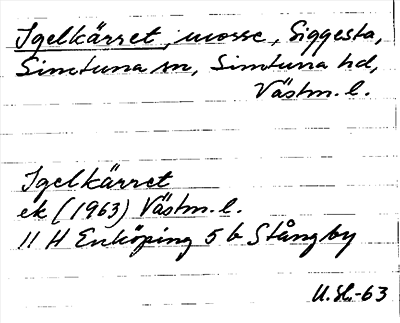 Igelkärret, mosse, Siggesta,
Simtuna sn, Simtuna hd,
Västm. l.
Igelkärret
ek (1963) Västm. l.
11 H Enköping 5 b Stångby
U.Sl.-63